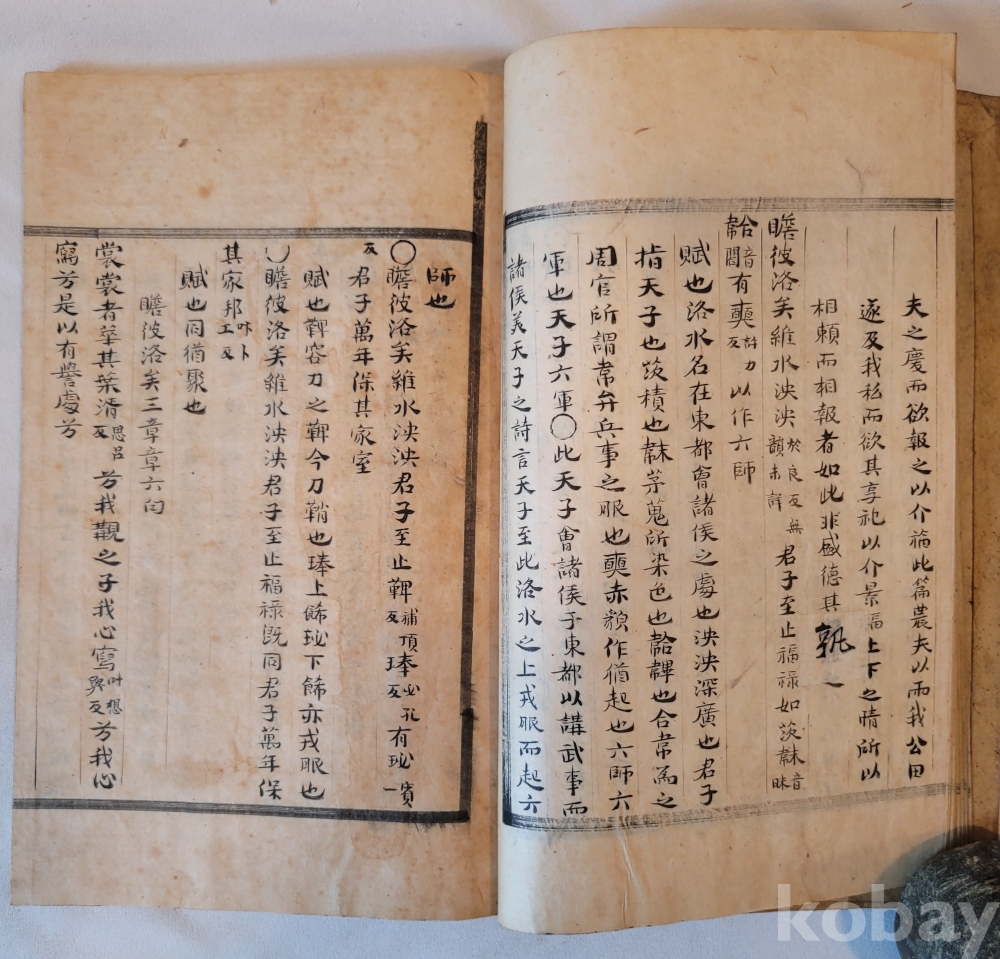 夫之慶而欲報之以介福此篇農夫以雨我公田
遂及我私而欲其享祀以介景福上下之情所以
相賴而相報者如此非盛德其孰
瞻彼洛矣維水泱泱於良反無韻未詳君子至止福祿如茨韎音昧
韐音閤有奭許力反以作六師
賦也洛水名在東都會諸侯之處也泱泱深廣也君子
指天子也茨積也韎茅蒐所染色也韐韠也合韋為之
周官所謂韋弁兵事之服也奭赤貌作猶起也六師六
軍也天子六軍○此天子會諸侯于東都以講武事而
諸侯美天子之詩言天子至此洛水之上戎服而起六
師也
○瞻彼洛矣維水泱泱君子至止鞞補頂反琫必孔反有珌賓一
反君子萬年保其家室
賦也鞞容刀之鞞今刀鞘也琫上飾珌下飾亦戎服也
○瞻彼洛矣維水泱泱君子至止福祿既同君子萬年保
其家邦叶卜工反
賦也同猶聚也
瞻彼洛矣三章章六句
裳裳者華其葉湑思呂反兮我覯之子我心寫叶想與反兮我心
寫兮是以有譽處兮
kobay